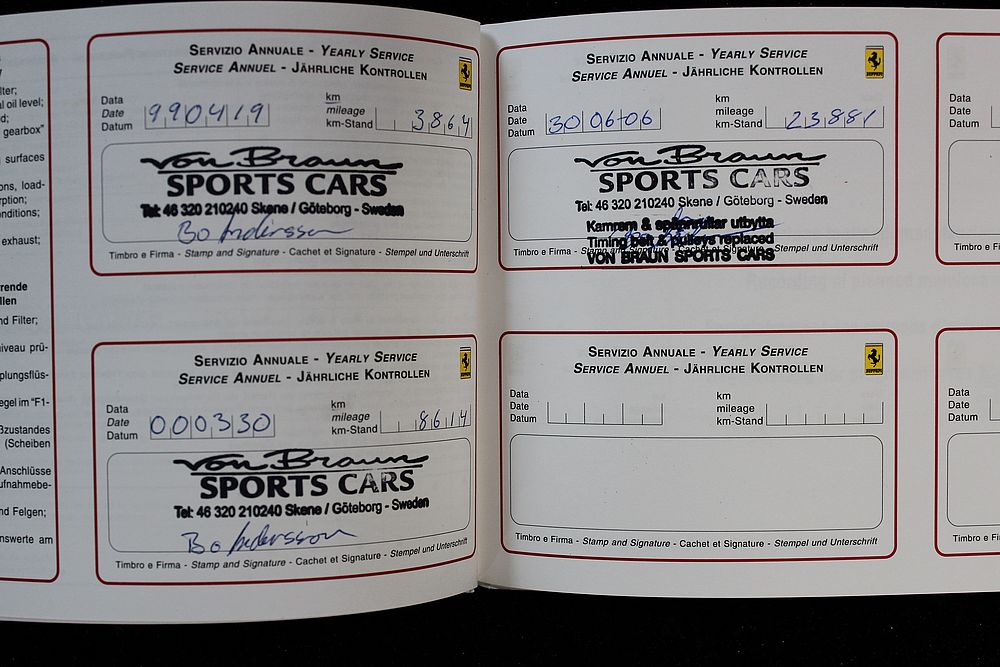 lter;
al oil level;
d;
gearbox"
surfaces
ons, load-
rption;
nditions;
exhaust;
rende
llen
nd Filter;
iveau prü-
plungsflüs-
egel im "F1-
ßzustandes
(Scheiben
Anschlüsse
ufnahmebe-
nd Felgen;
nswerte am
Servizio Annuale - Yearly Service
Service Annuel - Jährliche Kontrollen
Data
Date
Datum
990419
km
mileage
km-Stand
3864
von Braun
SPORTS CARS
Tel: 46 320 210240 Skene / Göteborg - Sweden
Bo Andersson
Timbro e Firma - Stamp and Signature - Cachet et Signature - Stempel und Unterschrift
Servizio Annuale - Yearly Service
Service Annuel - Jährliche Kontrollen
Data
Date
Datum
000330
km
mileage
km-Stand
8614
von Braun
SPORTS CARS
Tel: 46 320 210240 Skene / Göteborg - Sweden
Bo Andersson
Timbro e Firma - Stamp and Signature - Cachet et Signature - Stempel und Unterschrift
Servizio Annuale - Yearly Service
Service Annuel - Jährliche Kontrollen
Data
Date
Datum
30 06-06
km
mileage
km-Stand
23881
von Braun
SPORTS CARS
Tel: 46 320 210240 Skene / Göteborg - Sweden
Kamrem & spännrullar utbytta
Timing belt & pulleys replaced
VON BRAUN SPORTS CARS
Timbro e Firma - Stamp and Signature - Cachet et Signature - Stempel und Unterschrift
Servizio Annuale - Yearly Service
Service Annuel - Jährliche Kontrollen
Data
Date
Datum
km
mileage
km-Stand
Timbro e Firma - Stamp and Signature - Cachet et Signature - Stempel und Unterschrift
Data
Date
Datum
Timbro e Fi
Data
Date
Datum
Timbro e Fi